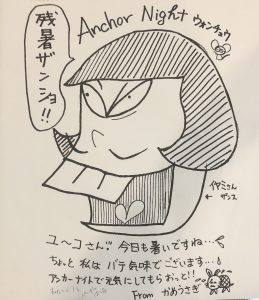 Anchor Night ウォンチュウ
残暑
ザンショ!!
イヤミさん
ザンス
ユ〜コさん!! 今日も暑いですね…
ちょっと 私は バテ気味でございます…
アンカーナイトで元気にしてもらおっと!!
From かめうさぎ